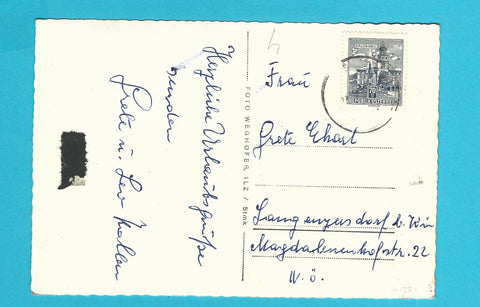 Herzliche Urlaubsgrüße
senden
Grete u. Leo
FOTO WEGHOFER, ILZ / Stmk
REPUBLIK ÖSTERREICH
Frau
Grete Ekart
Langenzersdorf b. Wien
Magdalenenhofstr. 22
N. Ö.